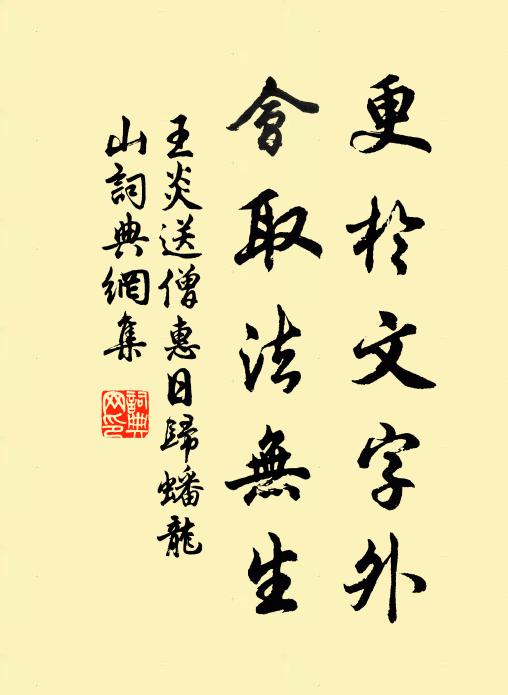 更於文字外
會取法無生
王炎送僧惠日歸蟠龍
山詞典網集
詞典
网印